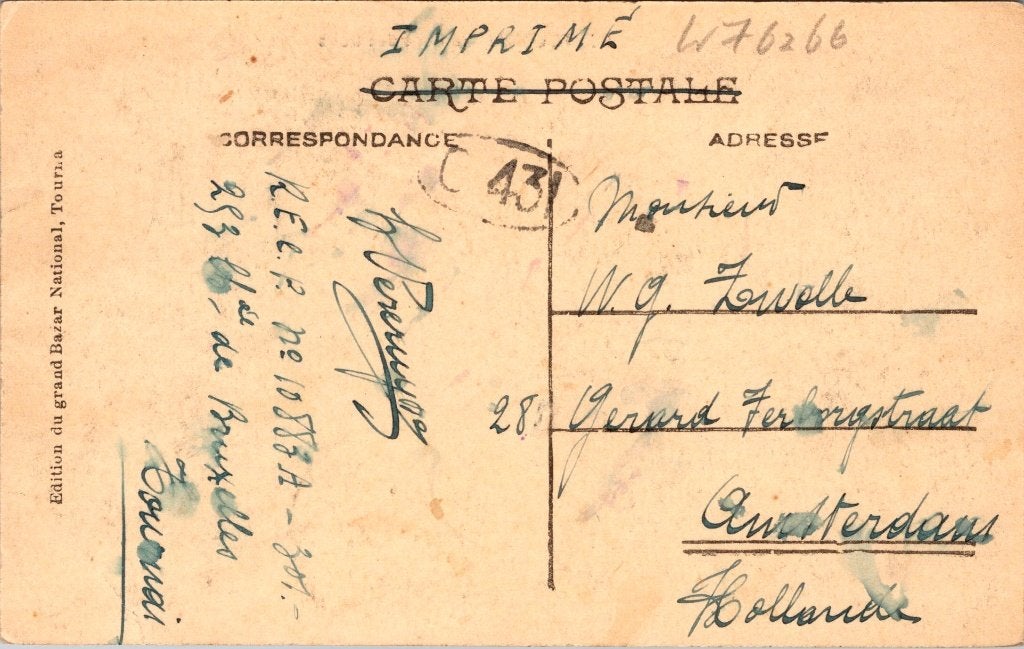 IMPRIMÉ
W76266
CARTE POSTALE
CORRESPONDANCE
ADRESSE
431
Edition du grand Bazar National, Tourna
R.E.C.P. no 10883 A - 30.-
253 de Bruxelles
Tournai
Monsieur
W. G. Zwolle
28 Gerard Terborgstraat
Amsterdam
Hollande